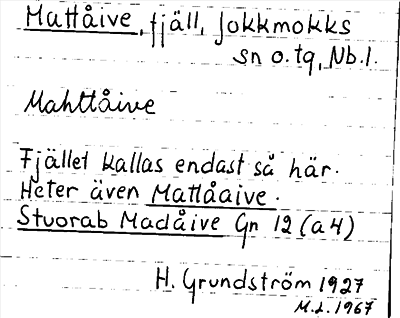 Mattåive, fjäll, Jokkmokks
sn o. tg, Nb. l.
Mahttåive
Fjället kallas endast så här.
Heter även Mattåaive.
Stuorab Madåive Gn 12 (a4)
H. Grundström 1927
M.L. 1967